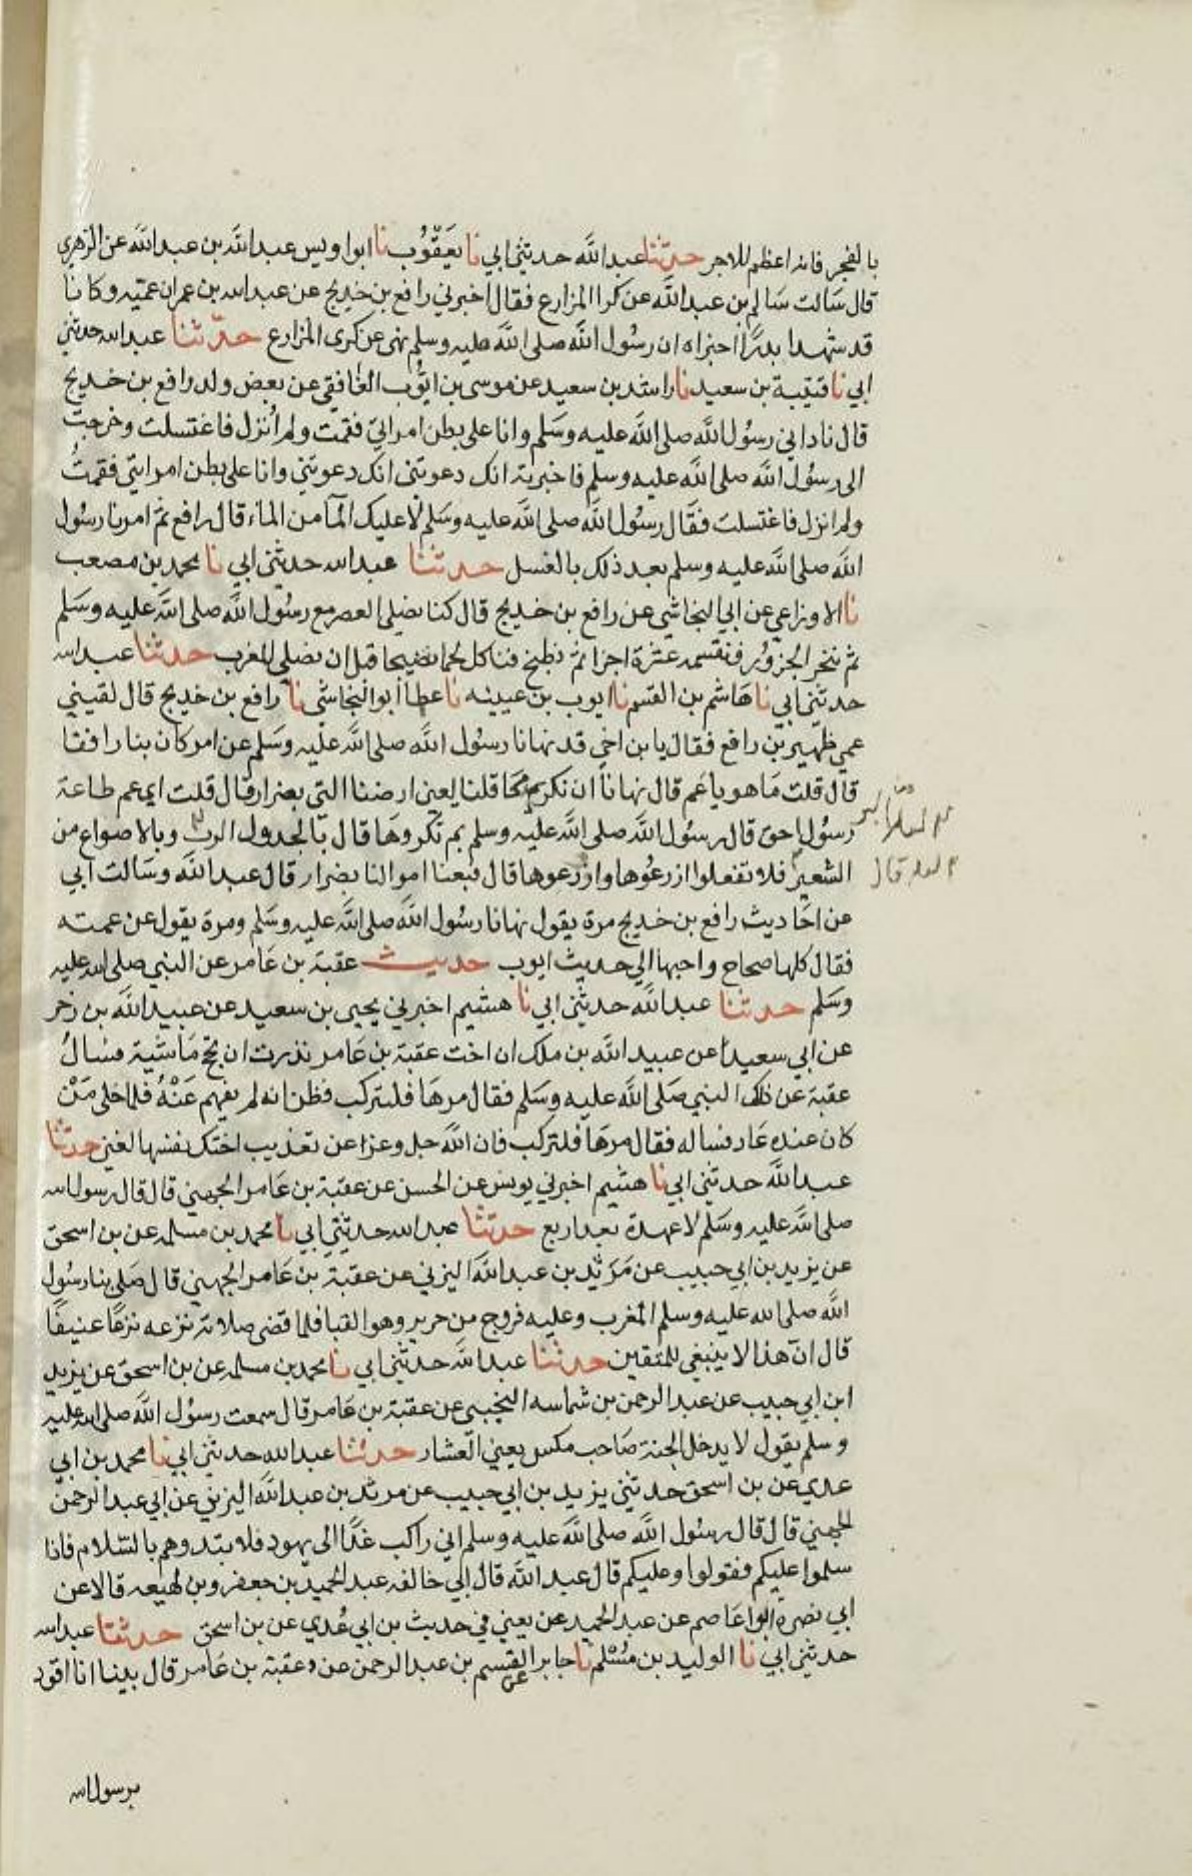 بالفجر فانه اعظم للاجر حدثنا عبد الله حدثني ابي نا يعقوب نا ابو اويس عبد الله بن عبد الله عن الزهري
قال سالت سالم بن عبد الله عن كرا المزارع فقال اخبرني رافع بن خديج عن عبد الله بن عمران عميه وكانا
قد شهدا بدرا اخبراه ان رسول الله صلى الله عليه وسلم نهى عن كرى المزارع حدثنا عبد الله حدثني
ابي نا قتيبة بن سعيد نا راشد بن سعيد عن موسى بن ايوب الغافقي عن بعض ولد رافع بن خديج
قال ناداني رسول الله صلى الله عليه وسلم وانا على بطن امراتي فقمت ولم أنزل فاغتسلت وخرجت
الى رسول الله صلى الله عليه وسلم فاخبرته انك دعوتني انك دعوتني وانا على بطن امراتي فقمت
ولم انزل فاغتسلت فقال رسول الله صلى الله عليه وسلم لا عليك المآ من الماء قال رافع ثم امرنا رسول
الله صلى الله عليه وسلم بعد ذلك بالغسل حدثنا عبد الله حدثني ابي نا محمد بن مصعب
نا الاوزاعي عن ابي النجاشي عن رافع بن خديج قال كنا نصلى العصر مع رسول الله صلى الله عليه وسلم
ثم ننحر الجزور فنقسم عشرة اجزا ثم نطبخ فناكل لحما نضيجا قبل ان نصلي المغرب حدثنا عبد الله
حدثني ابي نا هاشم بن القسم نا ايوب بن عيينه نا عطا أبو النجاشى نا رافع بن خديج قال لقيني
عمي ظهير بن رافع فقال يا بن اخي قد نهانا رسول الله صلى الله عليه وسلم عن امر كان بنا رافقا
قال قلت ما هو يا عم قال نهانا ان نكري محاقلنا يعنى ارضنا التي بصرار قال قلت اى عم طاعة
رسول احق قال رسول الله صلى الله عليه وسلم بم تكروها قال بالجدول الرب وبالاصواع من
الشعير فلا تفعلوا ازرعوها وازرعوها قال فبعنا اموالنا بصرار قال عبد الله وسالت ابي
عن احاديث رافع بن خديج مرة يقول نهانا رسول الله صلى الله عليه وسلم ومرة يقول عن عمته
فقال كلها صحاح واحبها الي حديث ايوب حديث عقبة بن عامر عن النبي صلى الله عليه
وسلم حدثنا عبد الله حدثني ابي نا هشيم اخبرني يحيى بن سعيد عن عبيد الله بن زحر
عن ابي سعيد عن عبيد الله بن ملك ان اخت عقبة بن عامر نذرت ان تحج ماشية فسال
عقبة عن ذلك النبي صلى الله عليه وسلم فقال مرها فلتركب فظن انه لم يفهم عنه فلما خلى من
كان عنده عاد فساله فقال مرها فلتركب فان الله جل وعز اعن تعذيب اختك نفسها لغني حدثنا
عبد الله حدثني ابي نا هشيم اخبرني يونس عن الحسن عن عقبة بن عامر الجهني قال قال رسول الله
صلى الله عليه وسلم لا عهدة بعد اربع حدثنا عبد الله حدثني ابي نا محمد بن مسلمه عن بن اسحق
عن يزيد بن ابي حبيب عن مرثد بن عبد الله اليزني عن عقبة بن عامر الجهني قال صلى بنا رسول
الله صلى الله عليه وسلم المغرب وعليه فروج من حرير وهو القبا فلما قضى صلاته نزعه نزعا عنيفا
قال ان هذا لا ينبغي للمتقين حدثنا عبد الله حدثني ابي نا محمد بن مسلمه عن بن اسحق عن يزيد
ابن ابي حبيب عن عبد الرحمن بن شماسه التجيبى عن عقبة بن عامر قال سمعت رسول الله صلى الله عليه
وسلم يقول لا يدخل الجنة صاحب مكس يعني العشار حدثنا عبد الله حدثني ابي نا محمد بن ابي
عدي عن بن اسحق حدثني يزيد بن ابي حبيب عن مرثد بن عبد الله اليزني عن ابي عبد الرحمن
الجهني قال قال رسول الله صلى الله عليه وسلم اني راكب غدا الى يهود فلا تبتدوهم بالسلام فاذا
سلموا عليكم فقولوا وعليكم قال عبد الله قال ابي خالفه عبد الحميد بن جعفر وبن لهيعه قالا عن
ابي بصرة ابوا عاصم عن عبد الحميد عن يعني في حديث بن ابي عدي عن بن اسحق حدثنا عبد الله
حدثني ابي نا الوليد بن مسلم نا جابر القسم بن عبد الرحمن عن عقبة بن عامر قال بينا انا اقود
برسول الله